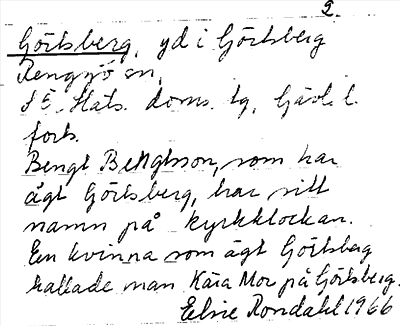 2.
Görtsberg, yd i Görtsberg
Rengsjö sn,
S E. Häls. doms. tg, Gävl. l.
forts.
Bengt Bengtsson, som har
ägt Görtsberg, har sitt
namn på kyrkklockan.
En kvinna som ägt Görtsberg
kallade man Kära Mor på Görtsberg.
Elsie Rondahl 1966